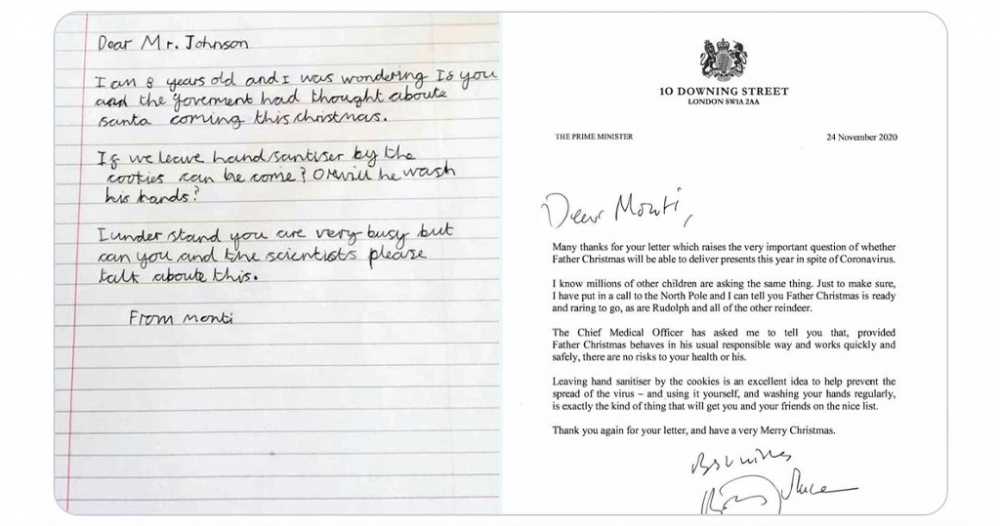 Dear Mr. Johnson
I am 8 years old and I was wondering If you
and the goverment had thought aboute
santa coming this christmas.
If we leave hand santiser by the
cookies can he come? Or will he wash
his hands?
I under stand you are very busy but
can you and the scientists please
talk aboute this.
From monti
10 DOWNING STREET
LONDON SW1A 2AA
THE PRIME MINISTER
24 November 2020
Dear Monti,
Many thanks for your letter which raises the very important question of whether
Father Christmas will be able to deliver presents this year in spite of Coronavirus.
I know millions of other children are asking the same thing. Just to make sure,
I have put in a call to the North Pole and I can tell you Father Christmas is ready
and raring to go, as are Rudolph and all of the other reindeer.
The Chief Medical Officer has asked me to tell you that, provided
Father Christmas behaves in his usual responsible way and works quickly and
safely, there are no risks to your health or his.
Leaving hand sanitiser by the cookies is an excellent idea to help prevent the
spread of the virus – and using it yourself, and washing your hands regularly,
is exactly the kind of thing that will get you and your friends on the nice list.
Thank you again for your letter, and have a very Merry Christmas.
Best wishes